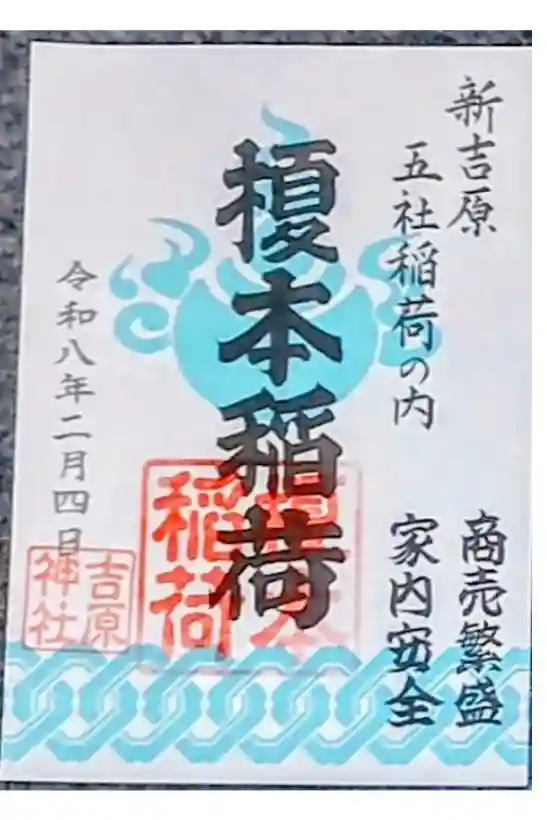 新吉原
五社稲荷の内
商売繁盛
家内安全
榎本稲荷
榎本稲荷
令和八年二月四日
吉原神社